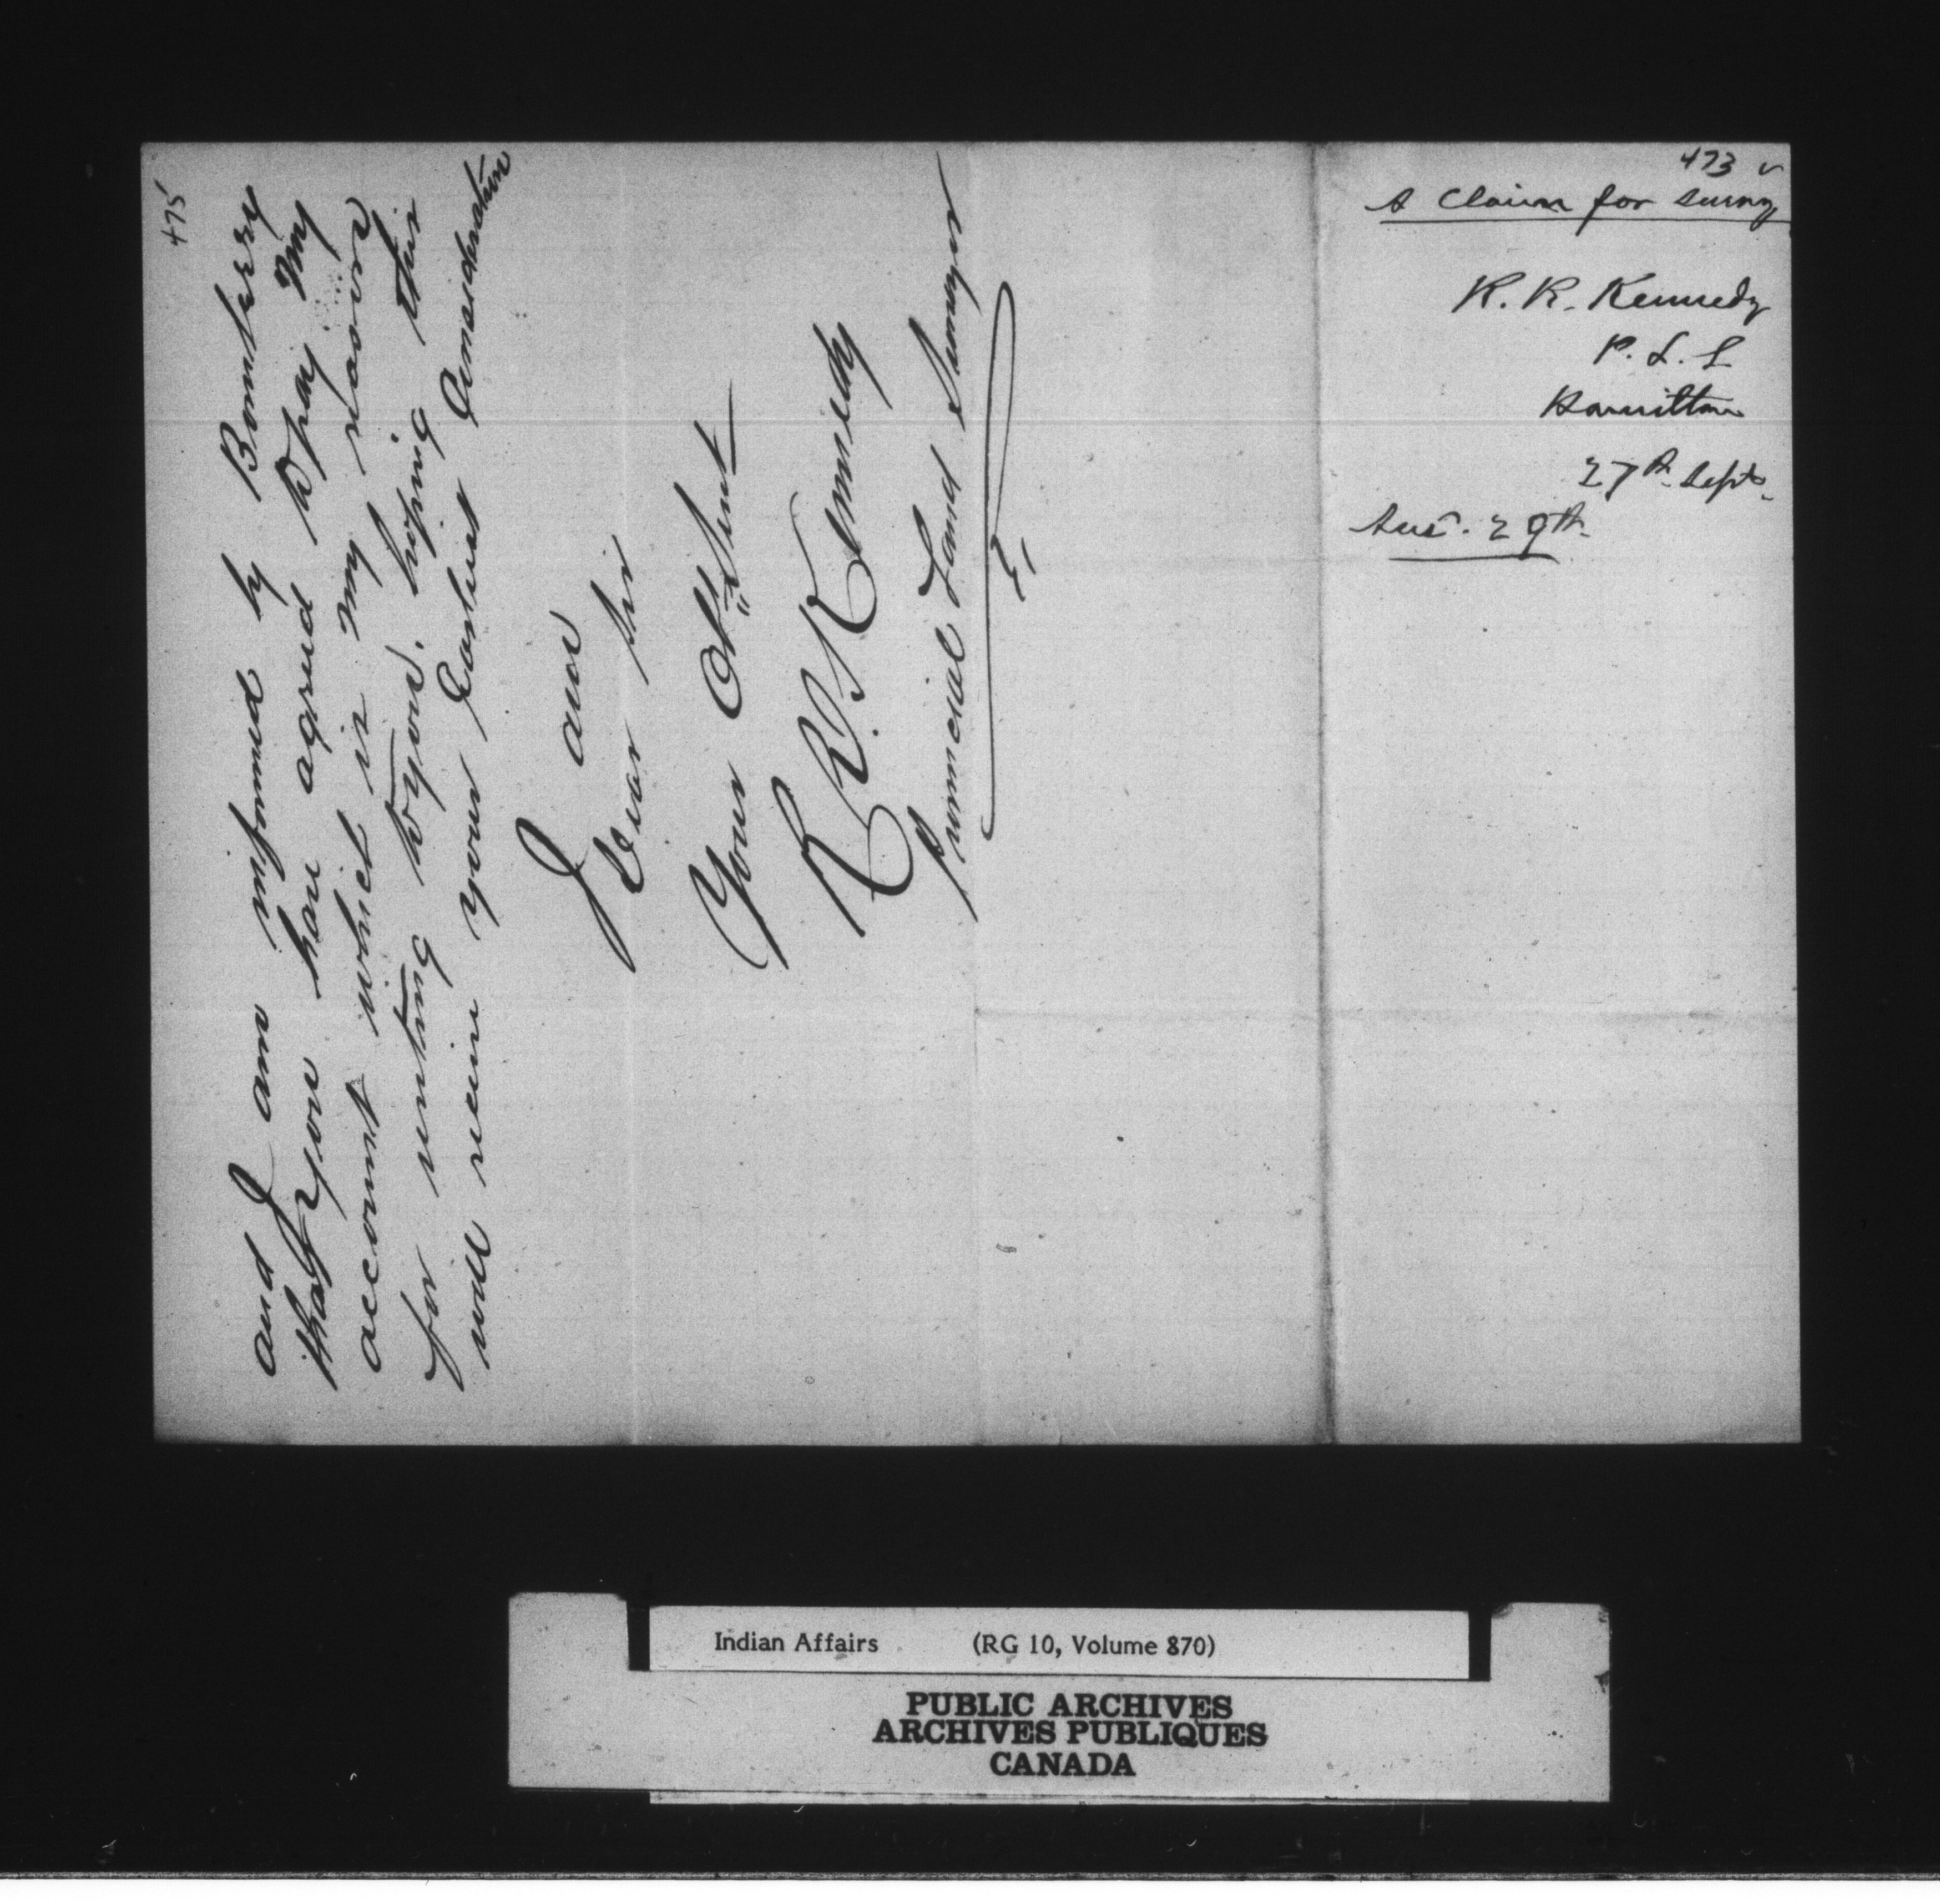 475
and I am informed by Bomberry
that you have agreed to pay my
account which is my reason
for writing to you. hoping this
will receive your Earliest Consideration
I am
Dear Sir
Your Obt Servt
R. R. Kennedy
Provincial Land Surveyor
473
A Claim for Survey
R. R. Kennedy
P. L. S
Hamilton
27th Septr
Ans. 29th
Indian Affairs (RG 10, Volume 870)
PUBLIC ARCHIVES
ARCHIVES PUBLIQUES
CANADA